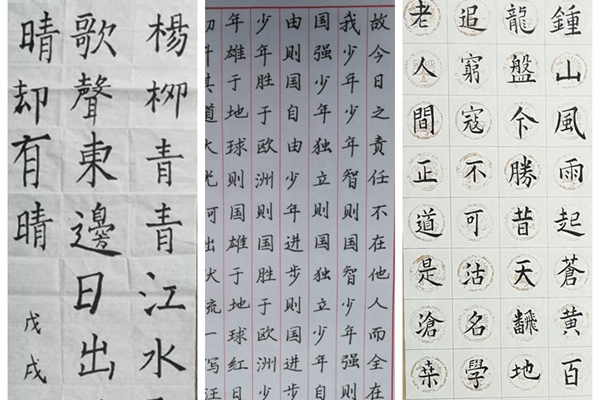 楊柳青青江水
歌聲東邊日出
晴却有晴
戊戌
故今日之责任不在他人而全在
我少年少年智则国智少年强则
国强少年独立则国独立少年自
由则国自由少年进步则国进步
少年胜于欧洲则国胜于欧洲少
年雄于地球则国雄于地球红日
初升其道大光河出伏流一泻汪
鍾山風雨起蒼黃百
龍盤今勝昔天飜地
追窮寇不可沽名學
老人間正道是滄桑